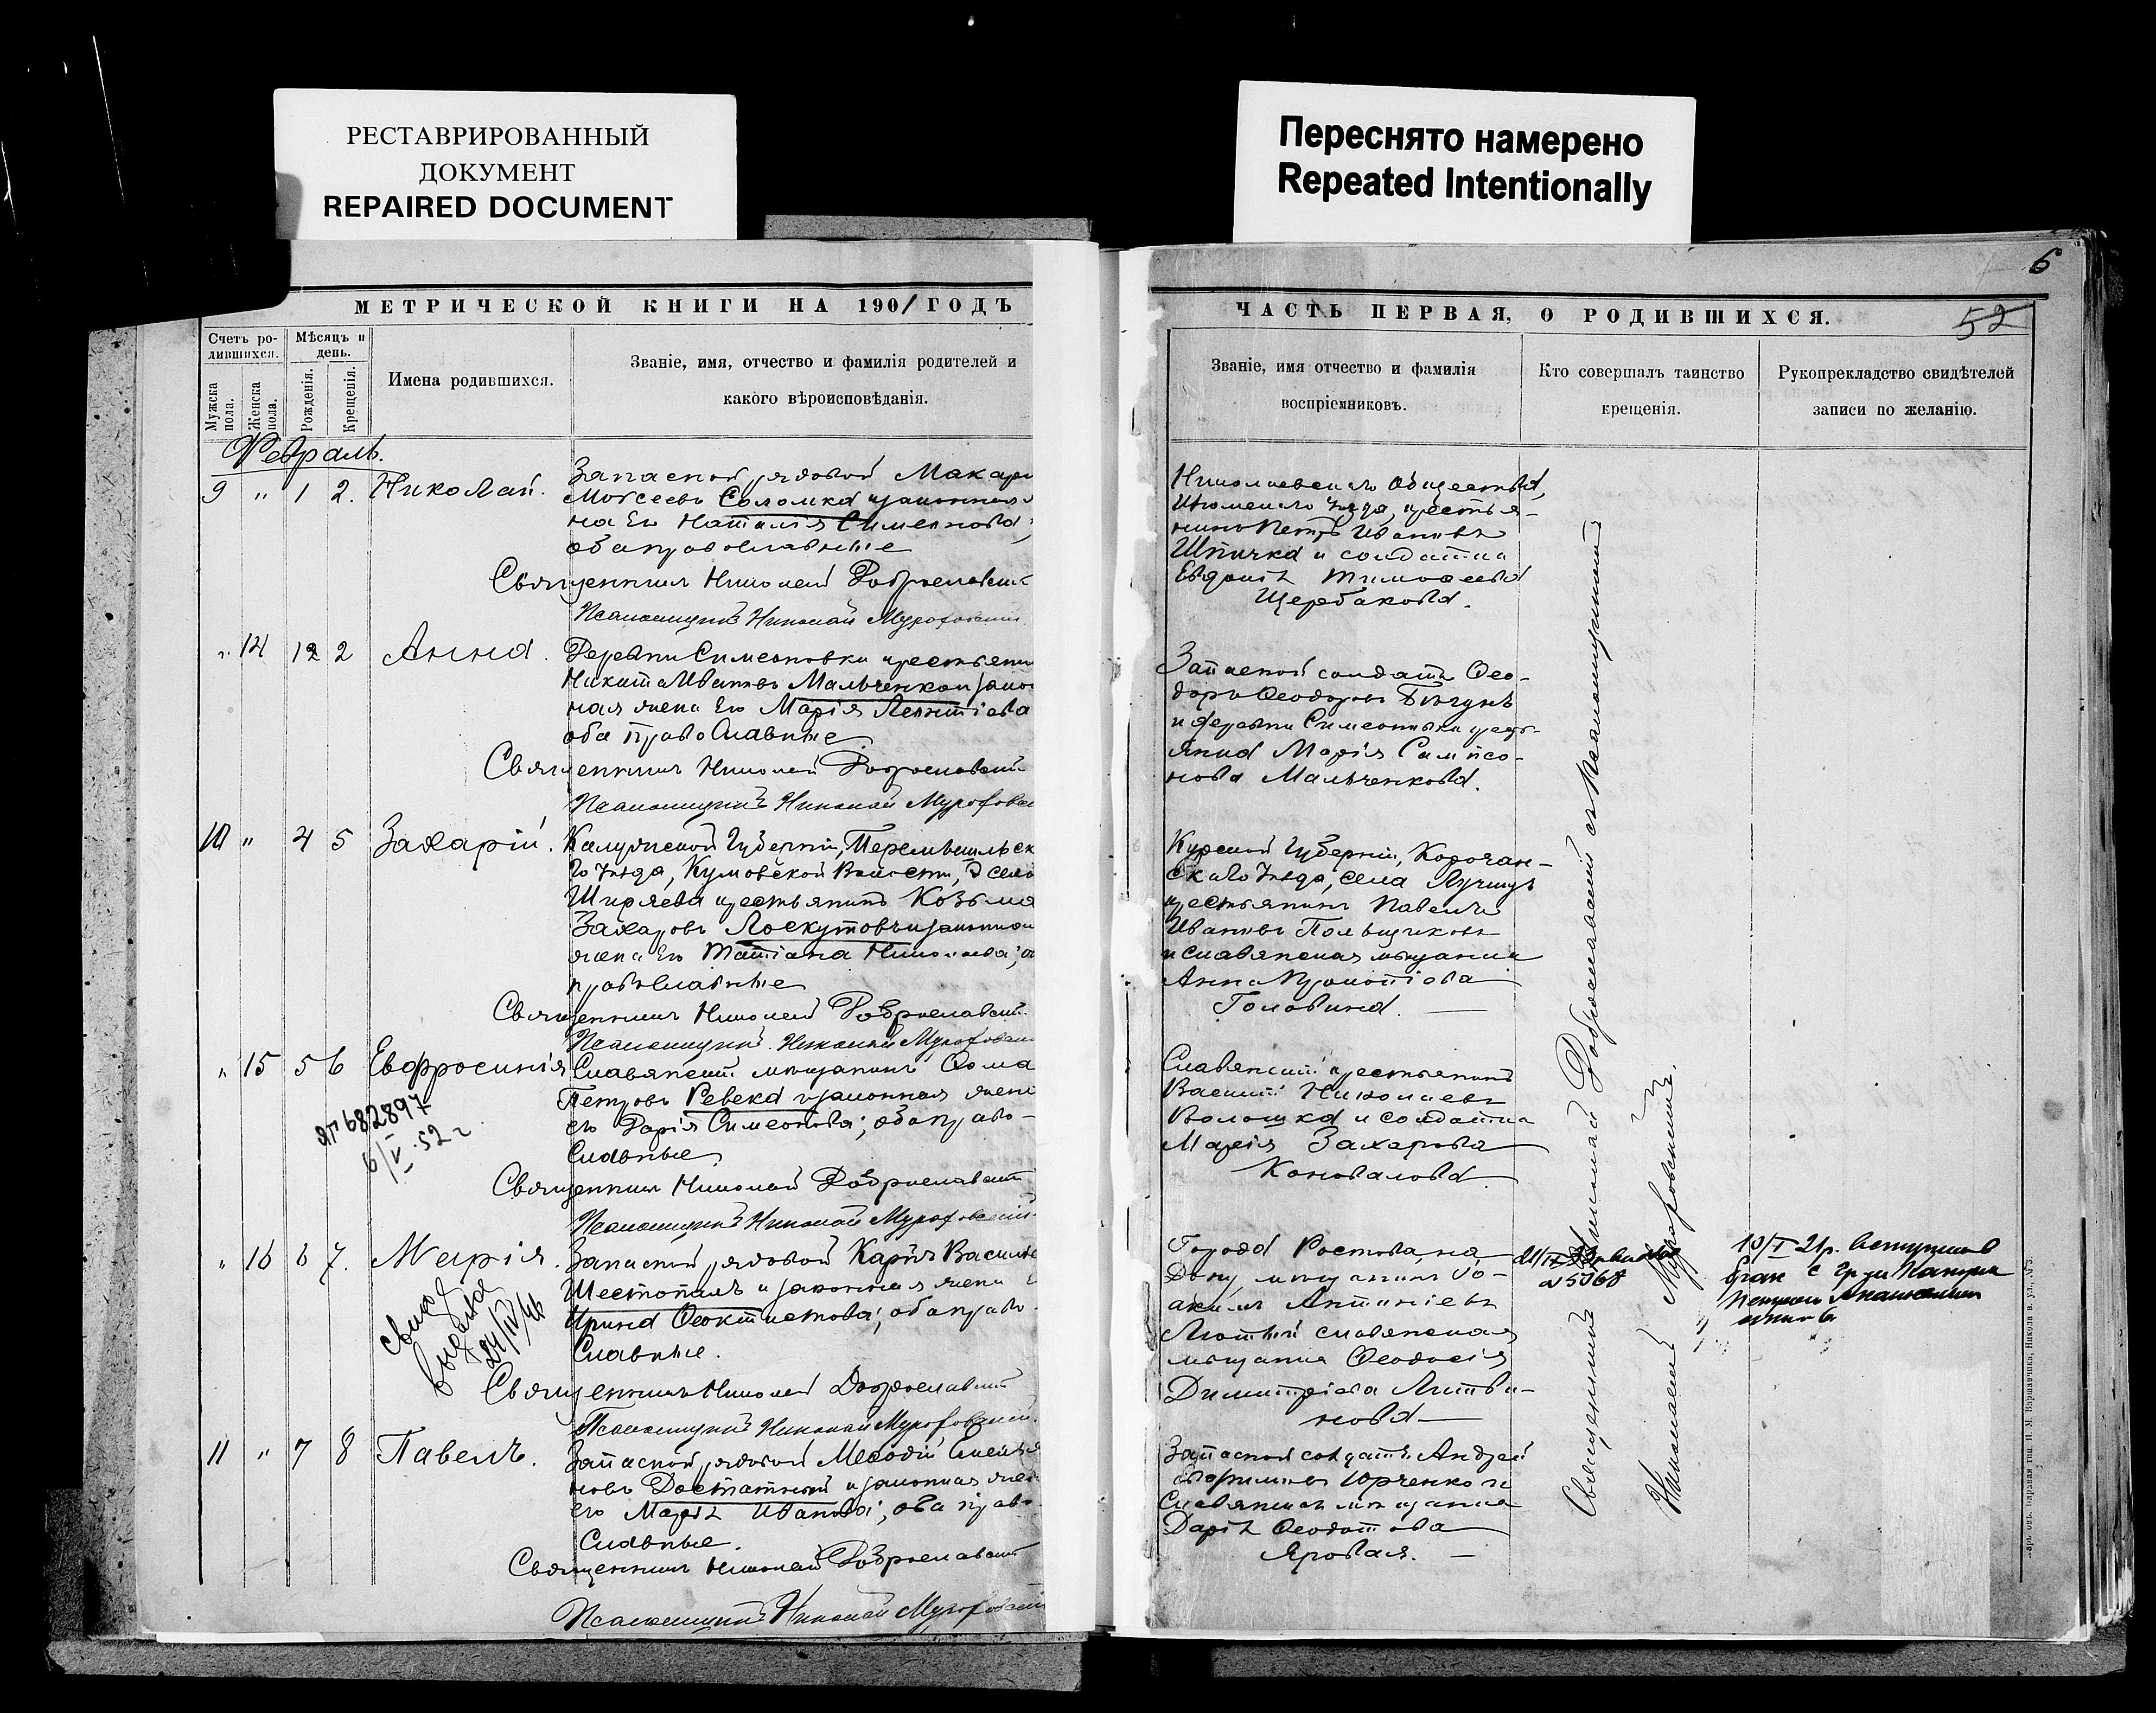 РЕСТАВРИРОВАННЫЙ
ДОКУМЕНТ
REPAIRED DOCUMENT
Переснято намерено
Repeated Intentionally
6
МЕТРИЧЕСКОЙ КНИГИ НА 1901 ГОДЪ
Счетъ ро-
дившихся.
Мужска
пола.
Женска
пола.
Мѣсяцъ и
день.
Рожденія.
Крещенія.
Имена родившихся.
Званіе, имя, отчество и фамилія родителей и
какого вѣроисповѣданія.
Февраль.
9 " 1 2. Николай.
Запасной рядовой Макар
Моѵсеевъ Соломка и законная
на его Наталія Симеонова,
оба православные
Священникъ Николай Доброславскі
Псаломщикъ Николай Мурофовскій
" 14 12 2 Анна.
Деревни Симеоновки крестьянин
Никита Ивановъ Мальченко и закон
ная жена его Марія Леонтіева
оба православные
Священникъ Николай Доброславскій
Псаломщикъ Николай Мурофовс
10 " 4 5 Захарій.
Калужской Губерніи, Перемышльск
го Уѣзда, Кумовской Волости, села
Ширяева крестьянинъ Козьма
Захаровъ Лоскутовъ и законная
жена его Татіана Николаева; о
православные
Священникъ Николай Доброславскій.
Псаломщикъ Николай Мурофовскі
" 15 5 6 Евфросинія
Славянскій мѣщанинъ Ѳома
Петровъ Ревека и законная жена
его Дарія Симеонова; оба право-
славные.
682897
6/V.52 г.
Священникъ Николай Доброславскій
Псаломщикъ Николай Мурофовскій
" 16 6 7. Марія.
Запасной рядовой Карпъ Василье
Шестопалъ и законная жена е
Ирина Ѳеоктистова; оба право-
славные.
выдана
24/IV/46
Священникъ Николай Доброславскій
Псаломщикъ Николай Мурофовскій.
11 " 7 8 Павелъ.
Запасной рядовой Меѳодій
новъ Достатний и законная жен
его Марія Иванова; оба право-
славные.
Священникъ Николай Доброславскій
Псаломщикъ Николай Мурофовскі
ЧАСТЬ ПЕРВАЯ, О РОДИВШИХСЯ.
52
Званіе, имя отчество и фамилія
воспріемниковъ.
Кто совершалъ таинство
крещенія.
Рукоприкладство свидѣтелей
записи по желанію.
Николаевскаго Общества,
Изюмскаго Уѣзда, крестья-
нинъ Петръ Ивановъ
Шпичка и солдатка
Евдокія Тимоѳеева
Щербакова.
Запасной солдатъ Ѳео-
доръ Ѳеодоровъ Бѣгунъ
и деревни Симеоновки крест-
янка Марія Сампсо-
нова Мальченкова.
Курской Губерніи, Корочан-
скаго Уѣзда, села
крестьянинъ Павелъ
Ивановъ Польщиковъ
и славянская мѣщанка
Анна
Головина.
Славянскій крестьянинъ
Василій Николаевъ
Волошка и солдатка
Марія Захарова
Коновалова.
Города Ростова на
Дону мѣщанинъ Іо-
акимъ Антоніевъ
Лютый славянская
мѣщанка Ѳеодосія
Димитріева Литви-
нова
Запасной солдатъ Андрей
Юрченко и
Славянская мѣщанка
Дарія Ѳеодотова
Яровая.
Священникъ Николай Доброславскій съ Псаломщикомъ
Николаемъ Мурофовскимъ.
10/I 21 р. вступила в
брак с